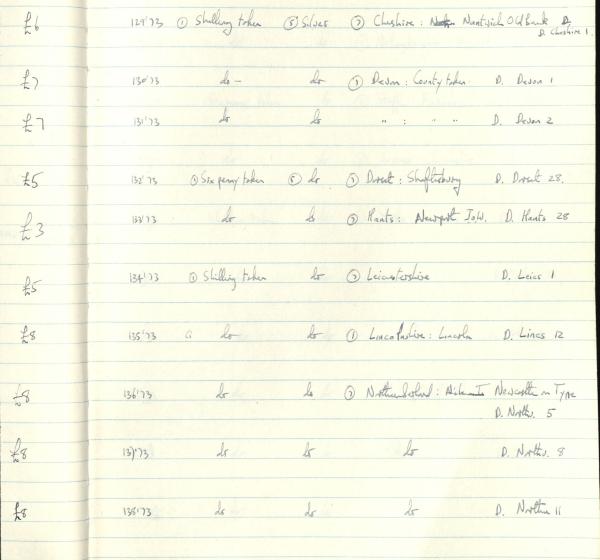 £6 129'73 ① Shilling token ⑤ Silver ⑦ Cheshire: Nantwich Old Bank D.
D. Cheshire 1.
£7 130'73 do - do ⑦ Devon: County token D. Devon 1
£7 131'73 do do " : " " D. Devon 2
£5 132'73 ① Sixpenny token ⑤ do ⑦ Dorset: Shaftesbury D. Dorset 28.
£3 133'73 do do ⑦ Hants: Newport I.o.W. D. Hants 28
£5 134'73 ① Shilling token do ⑦ Leicestershire D. Leics 1
£8 135'73 do do ⑦ Lincolnshire: Lincoln D. Lincs 12
£8 136'73 do do ⑦ Northumberland: Newcastle on Tyne
D. North. 5
£8 137'73 do do do D. North. 8
£8 138'73 do do do D. North 11